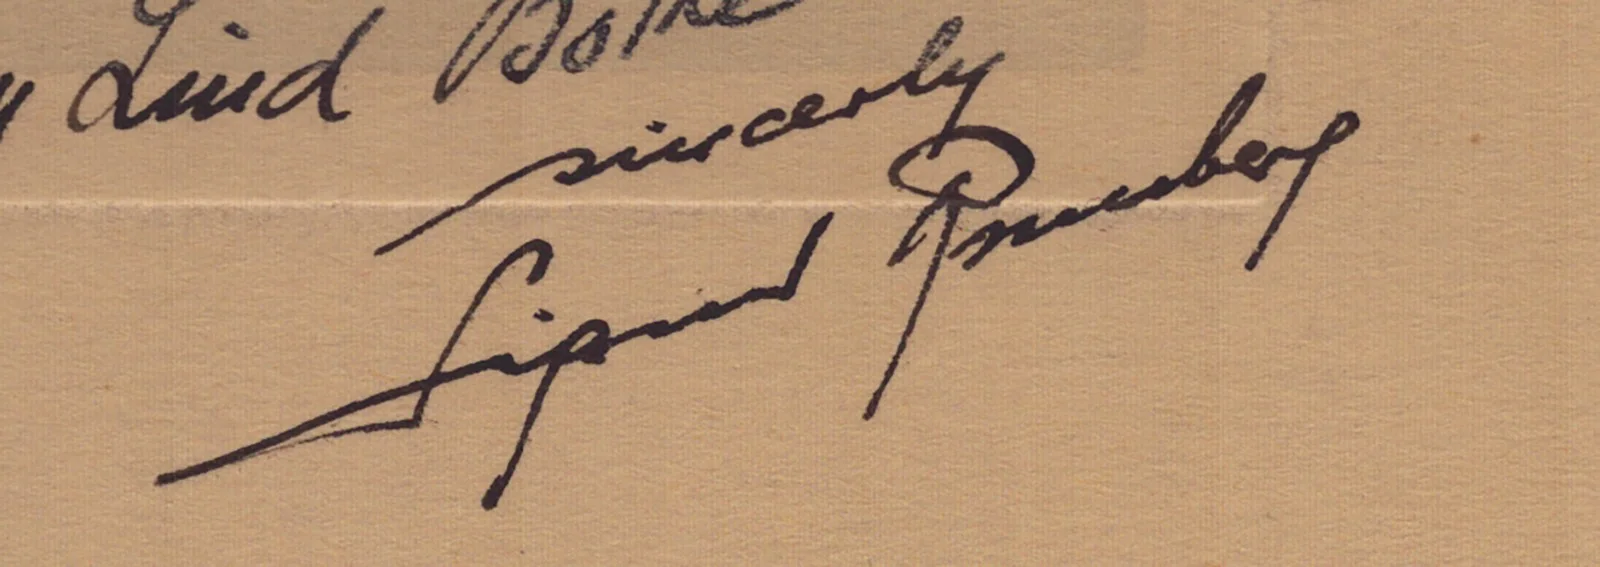 Lind Bothe
sincerly
Sigmund Romberg